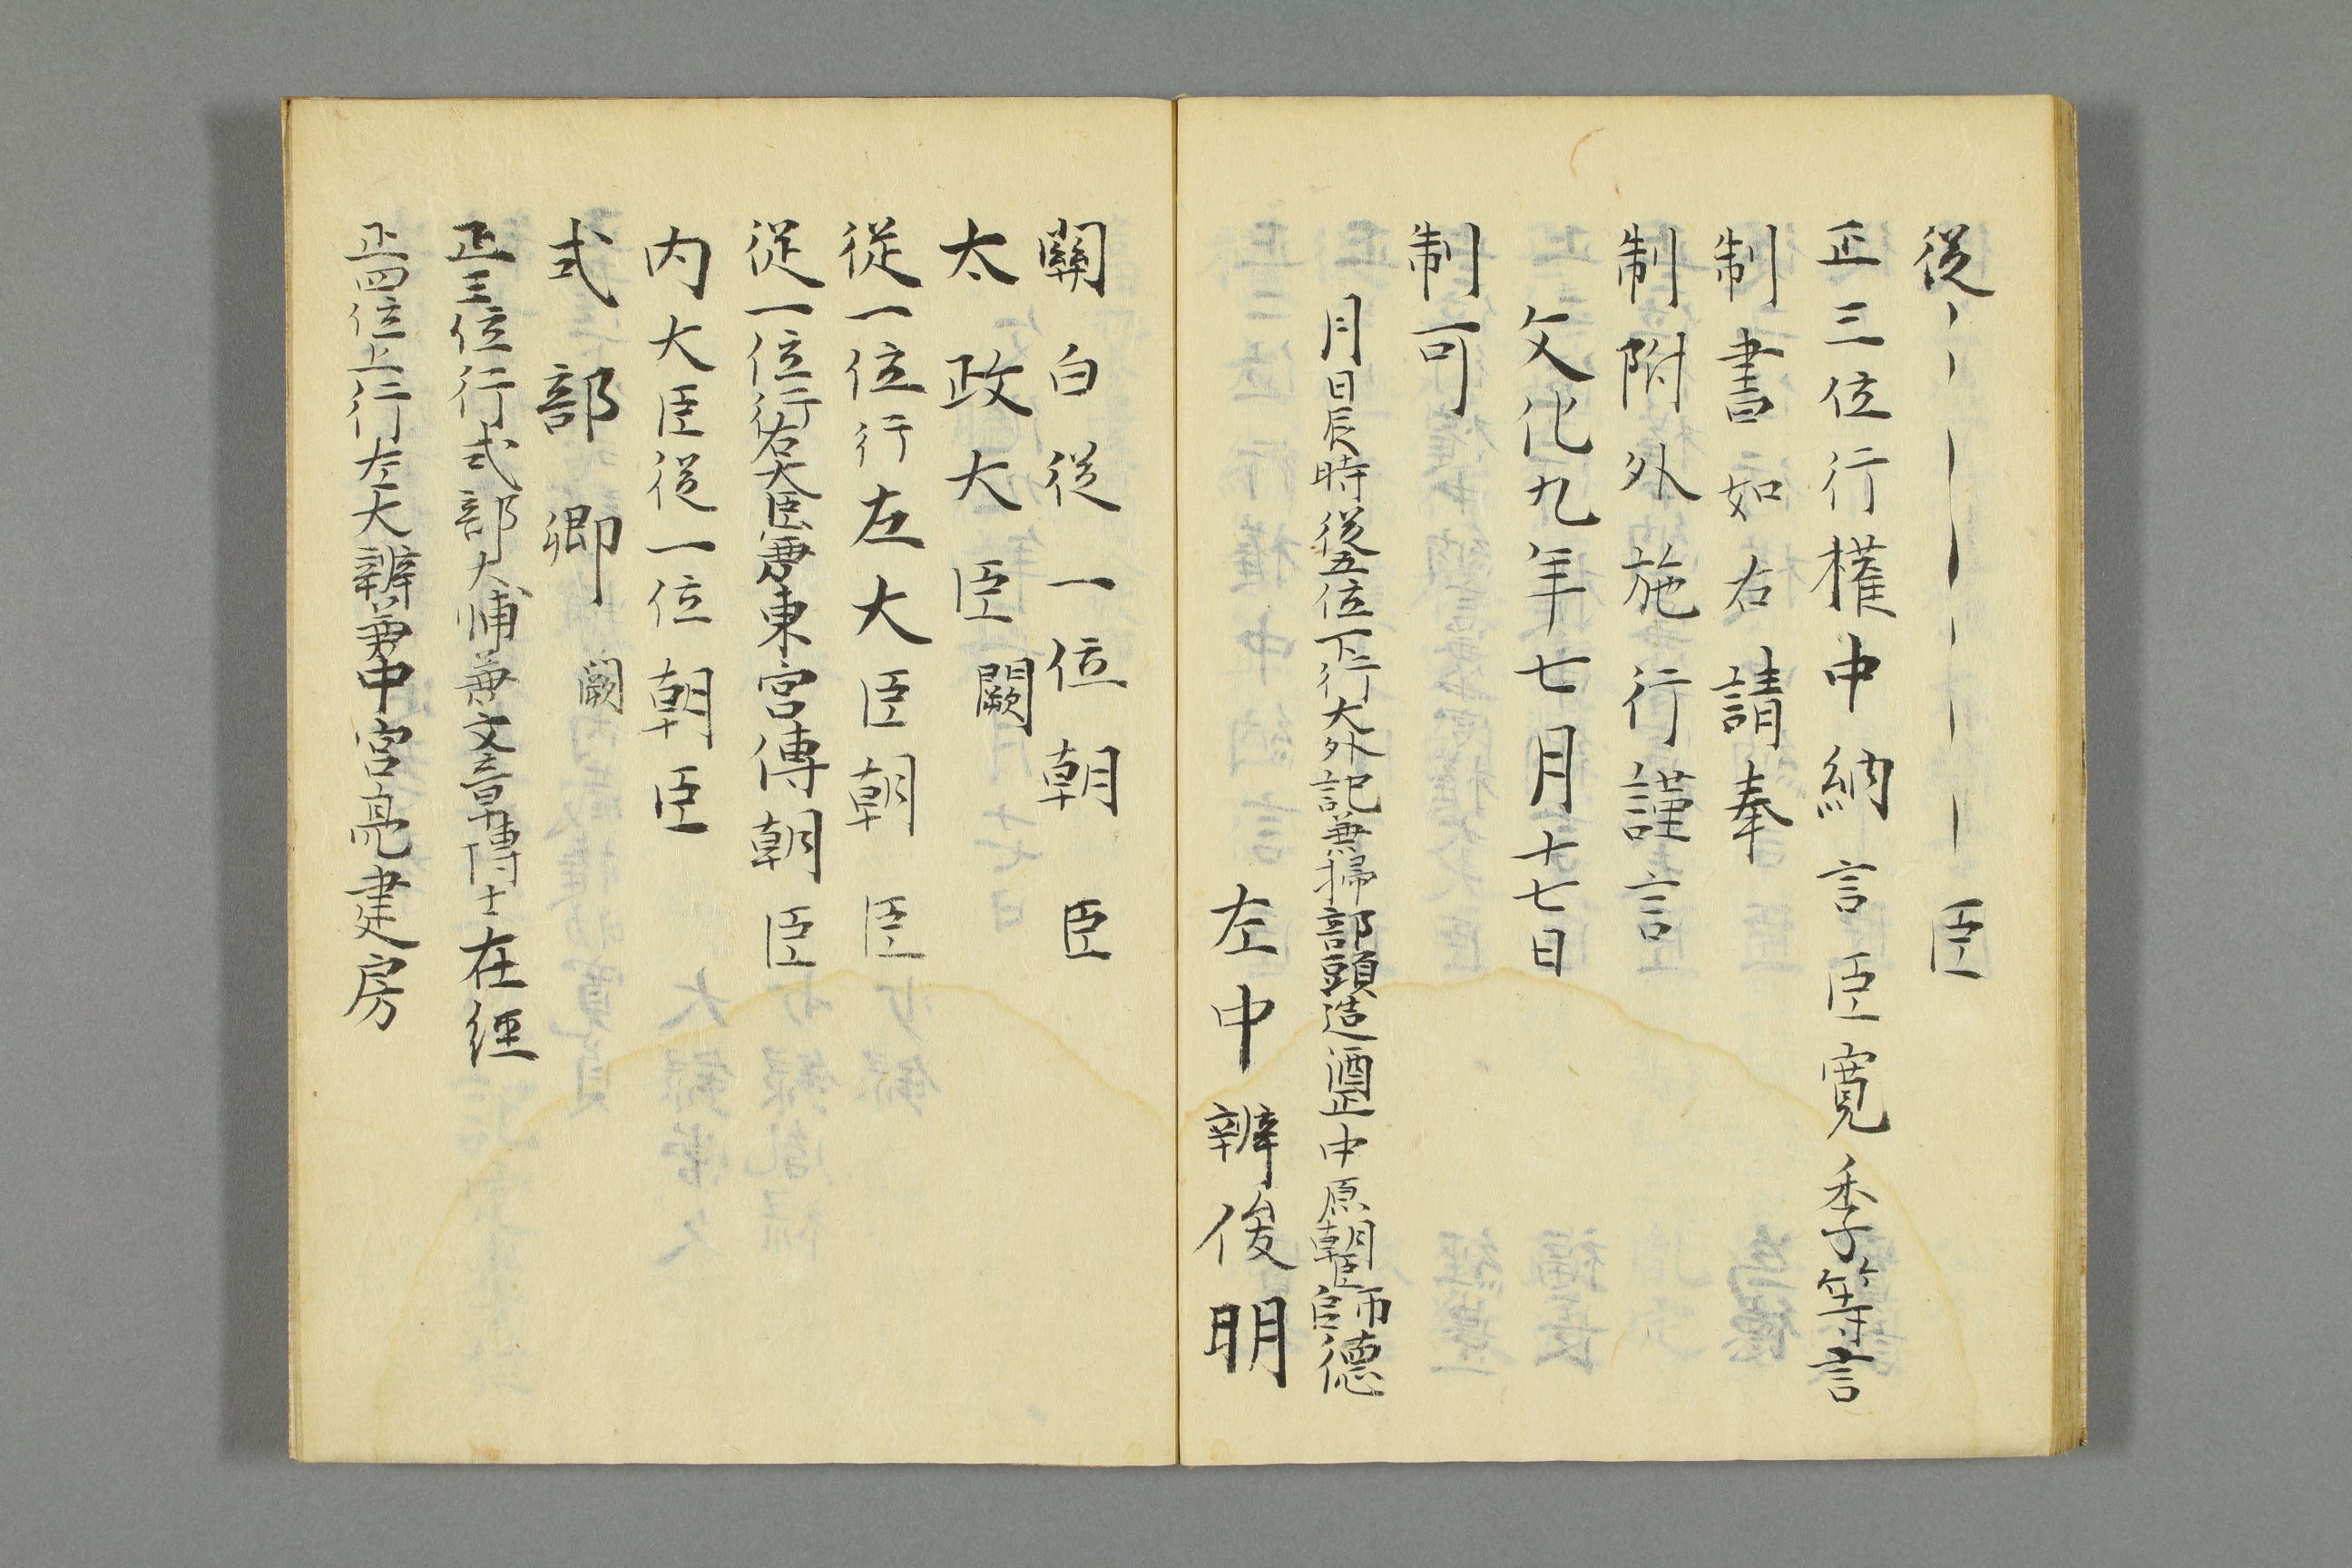 従｜｜｜｜｜｜臣
正三位行權中納言臣寛季等言
制書如右請奉
制附外施行謹言
文化九年七月十七日
制可
月日辰時従五位下行大外記兼掃部頭造酒正中原朝臣師德
左中辨俊明
關白従一位朝臣
太政大臣闕
従一位行左大臣朝臣
従一位行右大臣兼東宮傅朝臣
内大臣従一位朝臣
式部卿闕
正三位行式部大輔兼文章博士在経
正四位上行左大辨兼中宮亮建房